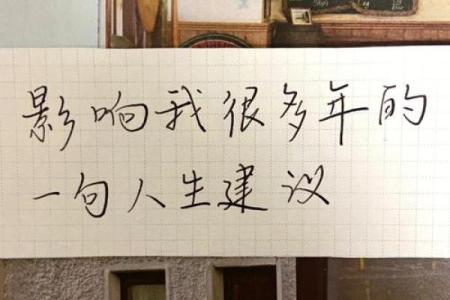 影响我很多年的
一句人生建议